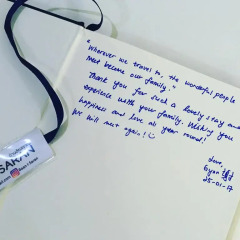 "Wherever we travel to, the wonderful people
met become our family."
Thank you for such a lovely stay and
experience with your family. Wishing you
happiness and love all year round!
We will meet again!! ☺
Love,
25-01-17
SARAN